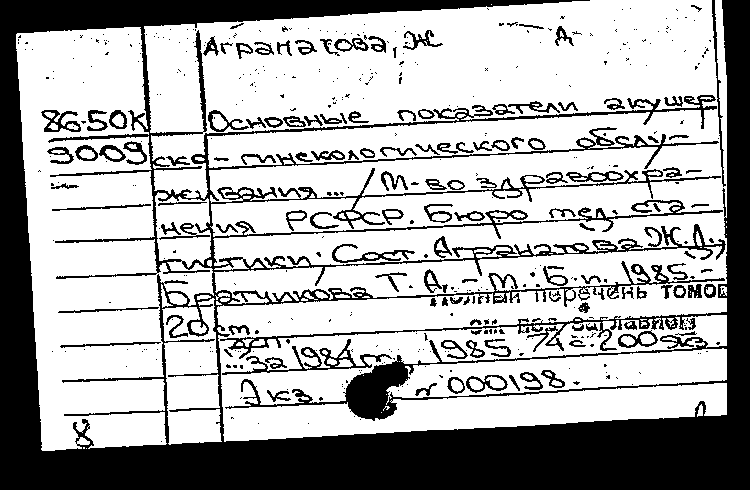 Агранатова, Ж Д
86-50К Основные показатели акушер
9009 ско-гинекологического обслу-
живания... / М-во здравоохра-
нения РСФСР. Бюро мед. ста-
тистики; Сост. Агранатова Ж.Д.,
Братчикова Т. Д. - М.: Б.и. 1985.-
Полный перечень томов
20 см.
см под заглавием
... за 1984 г. 1985. 74 с. 200 экз.
Экз. №000198.
8